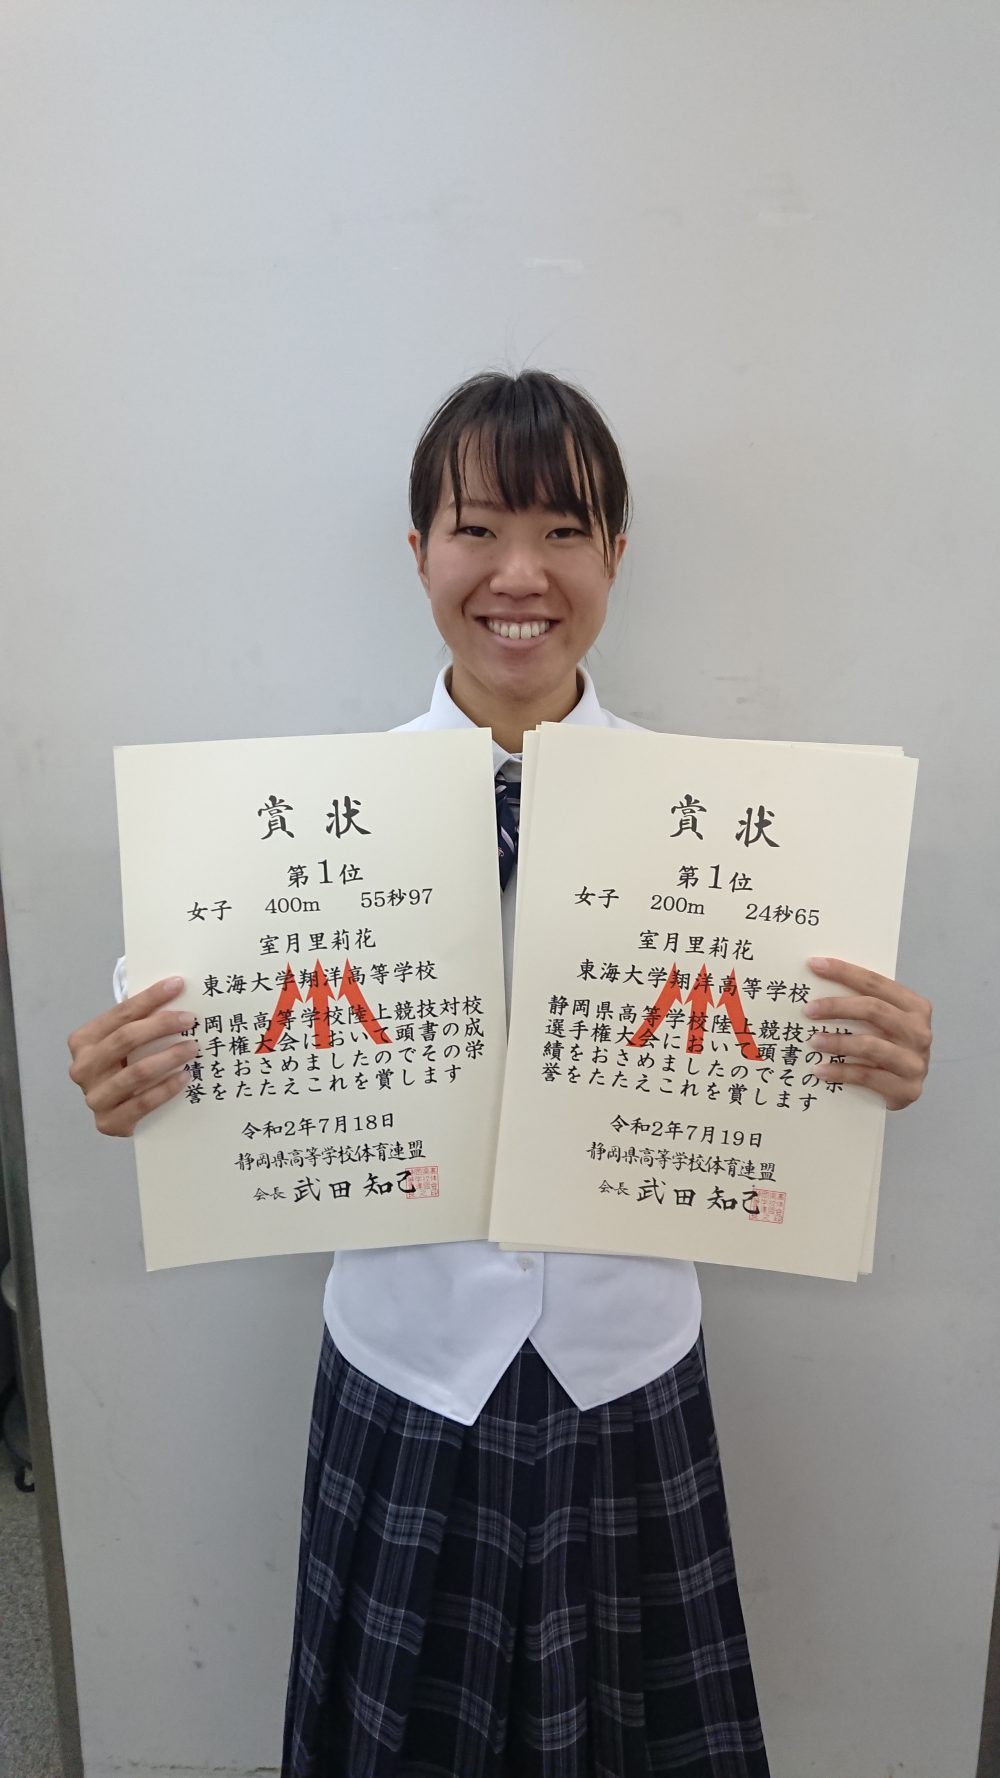 賞状
第1位
女子 400m 55秒97
室月里莉花
東海大学翔洋高等学校
静岡県高等学校陸上競技対校
選手権大会において頭書の成
績をおさめましたのでその栄
誉をたたえこれを賞します
令和2年7月18日
静岡県高等学校体育連盟
会長 武田知己
賞状
第1位
女子 200m 24秒65
室月里莉花
東海大学翔洋高等学校
静岡県高等学校陸上競技対校
選手権大会において頭書の成
績をおさめましたのでその栄
誉をたたえこれを賞します
令和2年7月19日
静岡県高等学校体育連盟
会長 武田知己